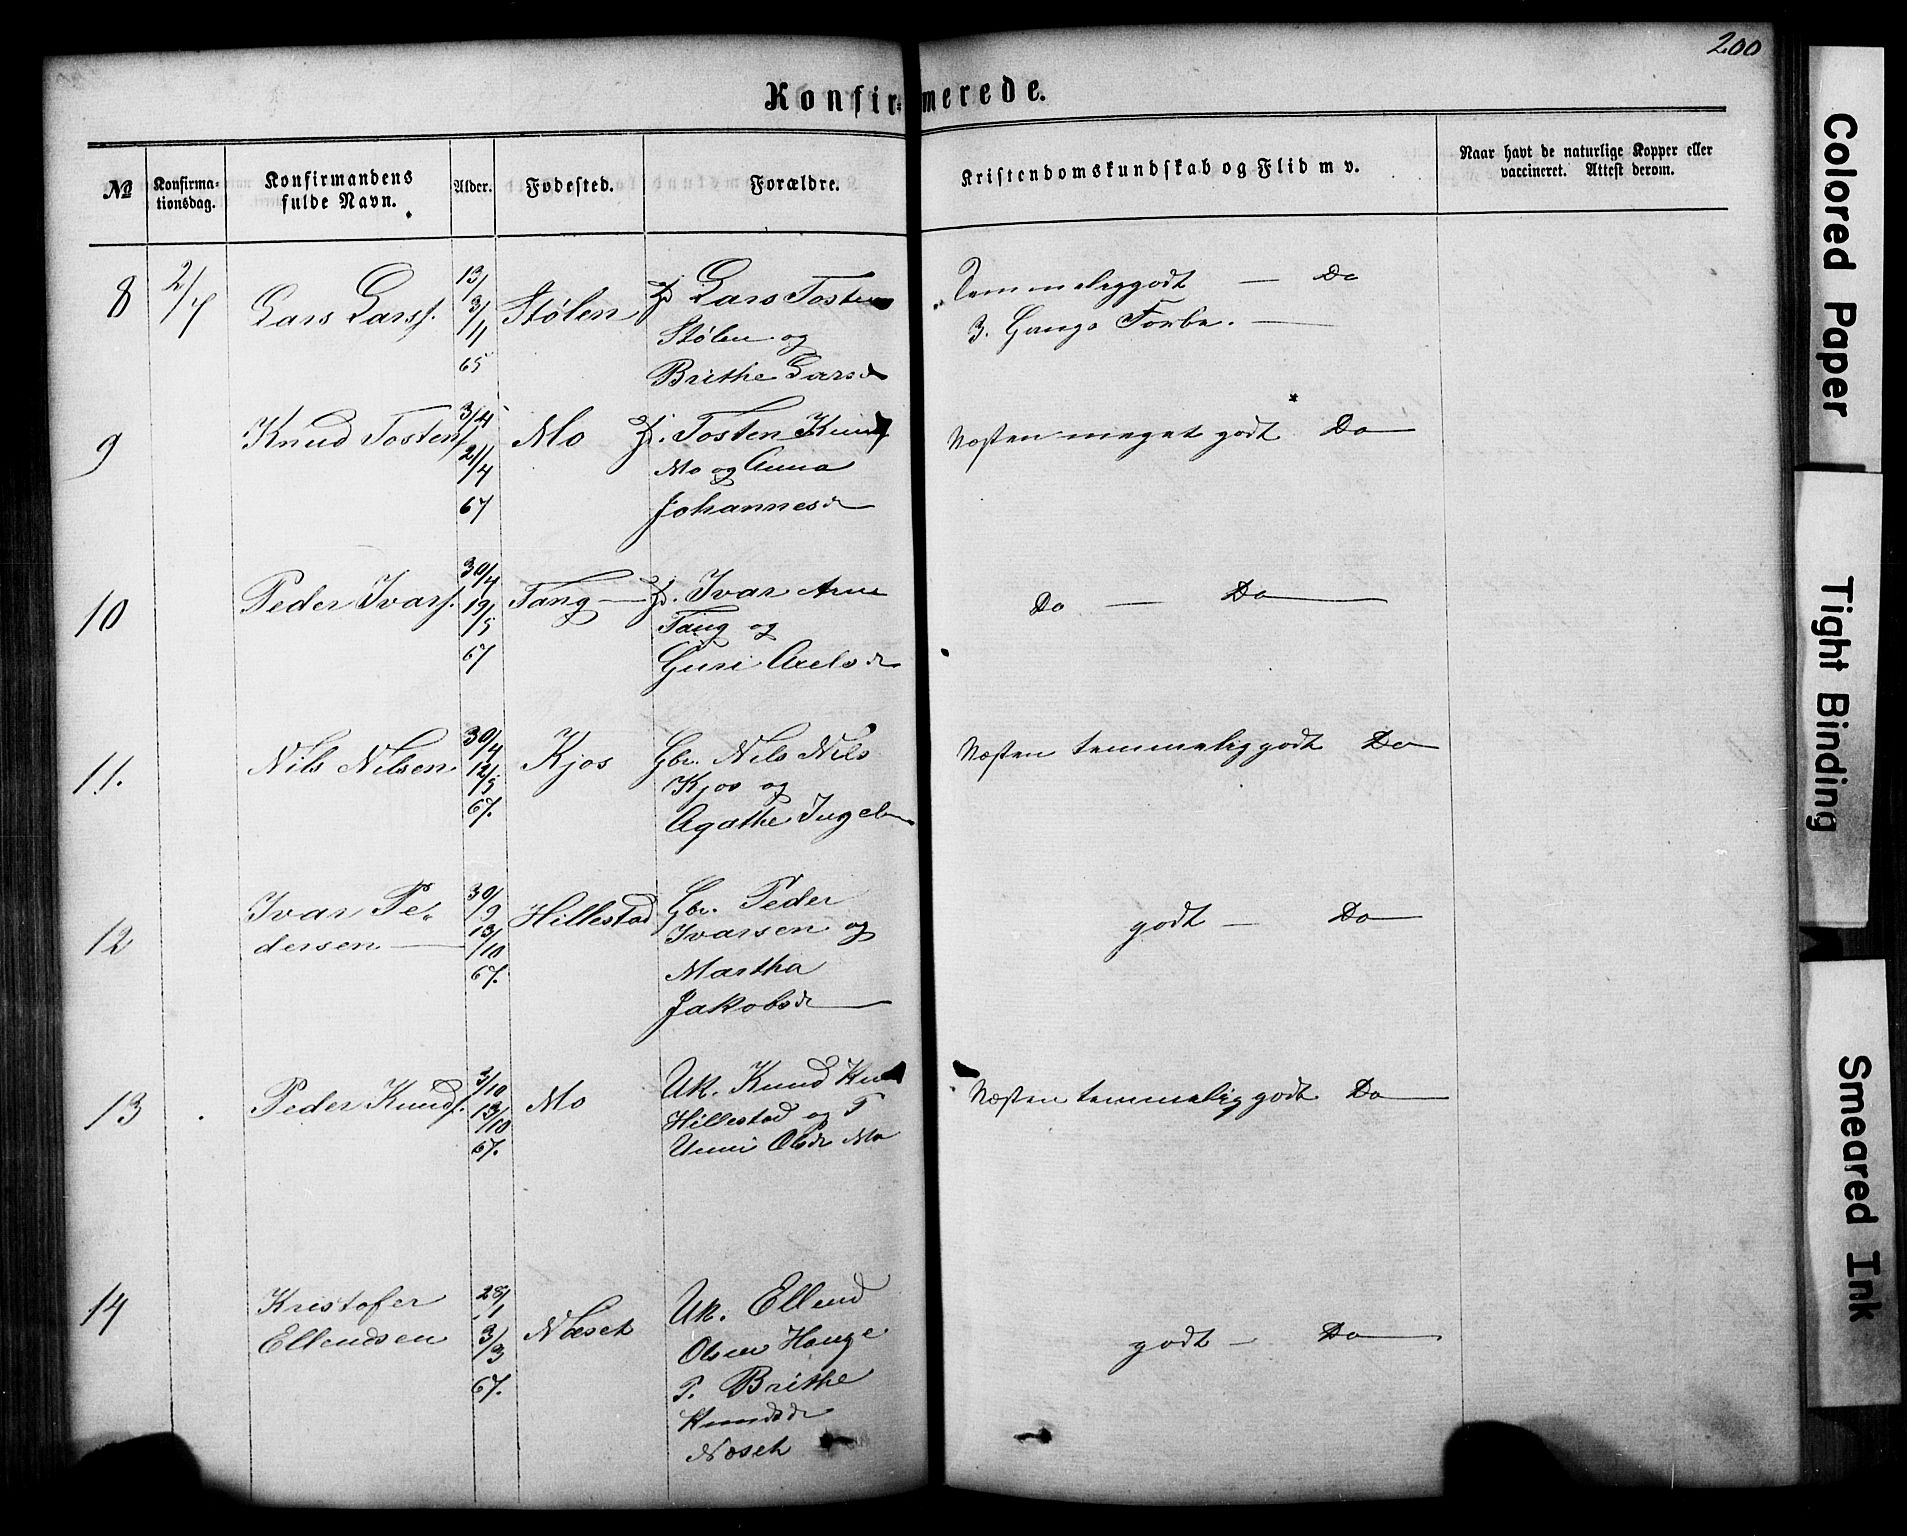 200
Konfirmerede.
№
Konfirma-
tionsdag.
Konfirmandens
fulde Navn.
Alder.
Fødested.
Forældre.
Kristendomskundskab og Flid m v.
Naar havt de naturlige Kopper eller
vaccineret. Attest derom.
8 2/7 Lars Larsf. 13/3 Stølen Lars Tosten
/11 Stølen og
65 Brithe Larsd
Temmeliggodt — Do
3. Gangs Forbe. —
9 Knud Tostenf 3/4 Mo Tosten Knud
21/4 Mo og Anna
67 Johannesd
Næsten meget godt Do
10 Peder Ivarsf. 30/4 Tang Ivar Arne
19/5 Tang og
67 Guri Axelsd
Do — Do
11. Nils Nilsen 30/4 Kjos Gbr. Nils Nils
12/5 Kjos og
67. Agathe Ingeb
Næsten temmelig godt Do
12 Ivar Pe- 30/9 Hillestad Gbr. Peder
dersen 13/10 Ivarsen og
67. Martha
Jakobsd
godt — Do
13 Peder Knudsf. 3/10 Mo Uk. Knud Knu
13/10 Hillestad og P
67. Unni Olsdr Mo
Næsten temmelig godt Do
14 Kristofer 28/1 Næset Uk. Ellend
Ellendsen 3/3 Olsen Hauge
67. P. Brithe
Knudsd
Næset
godt — Do
Colored Paper
Tight Binding
Smeared Ink